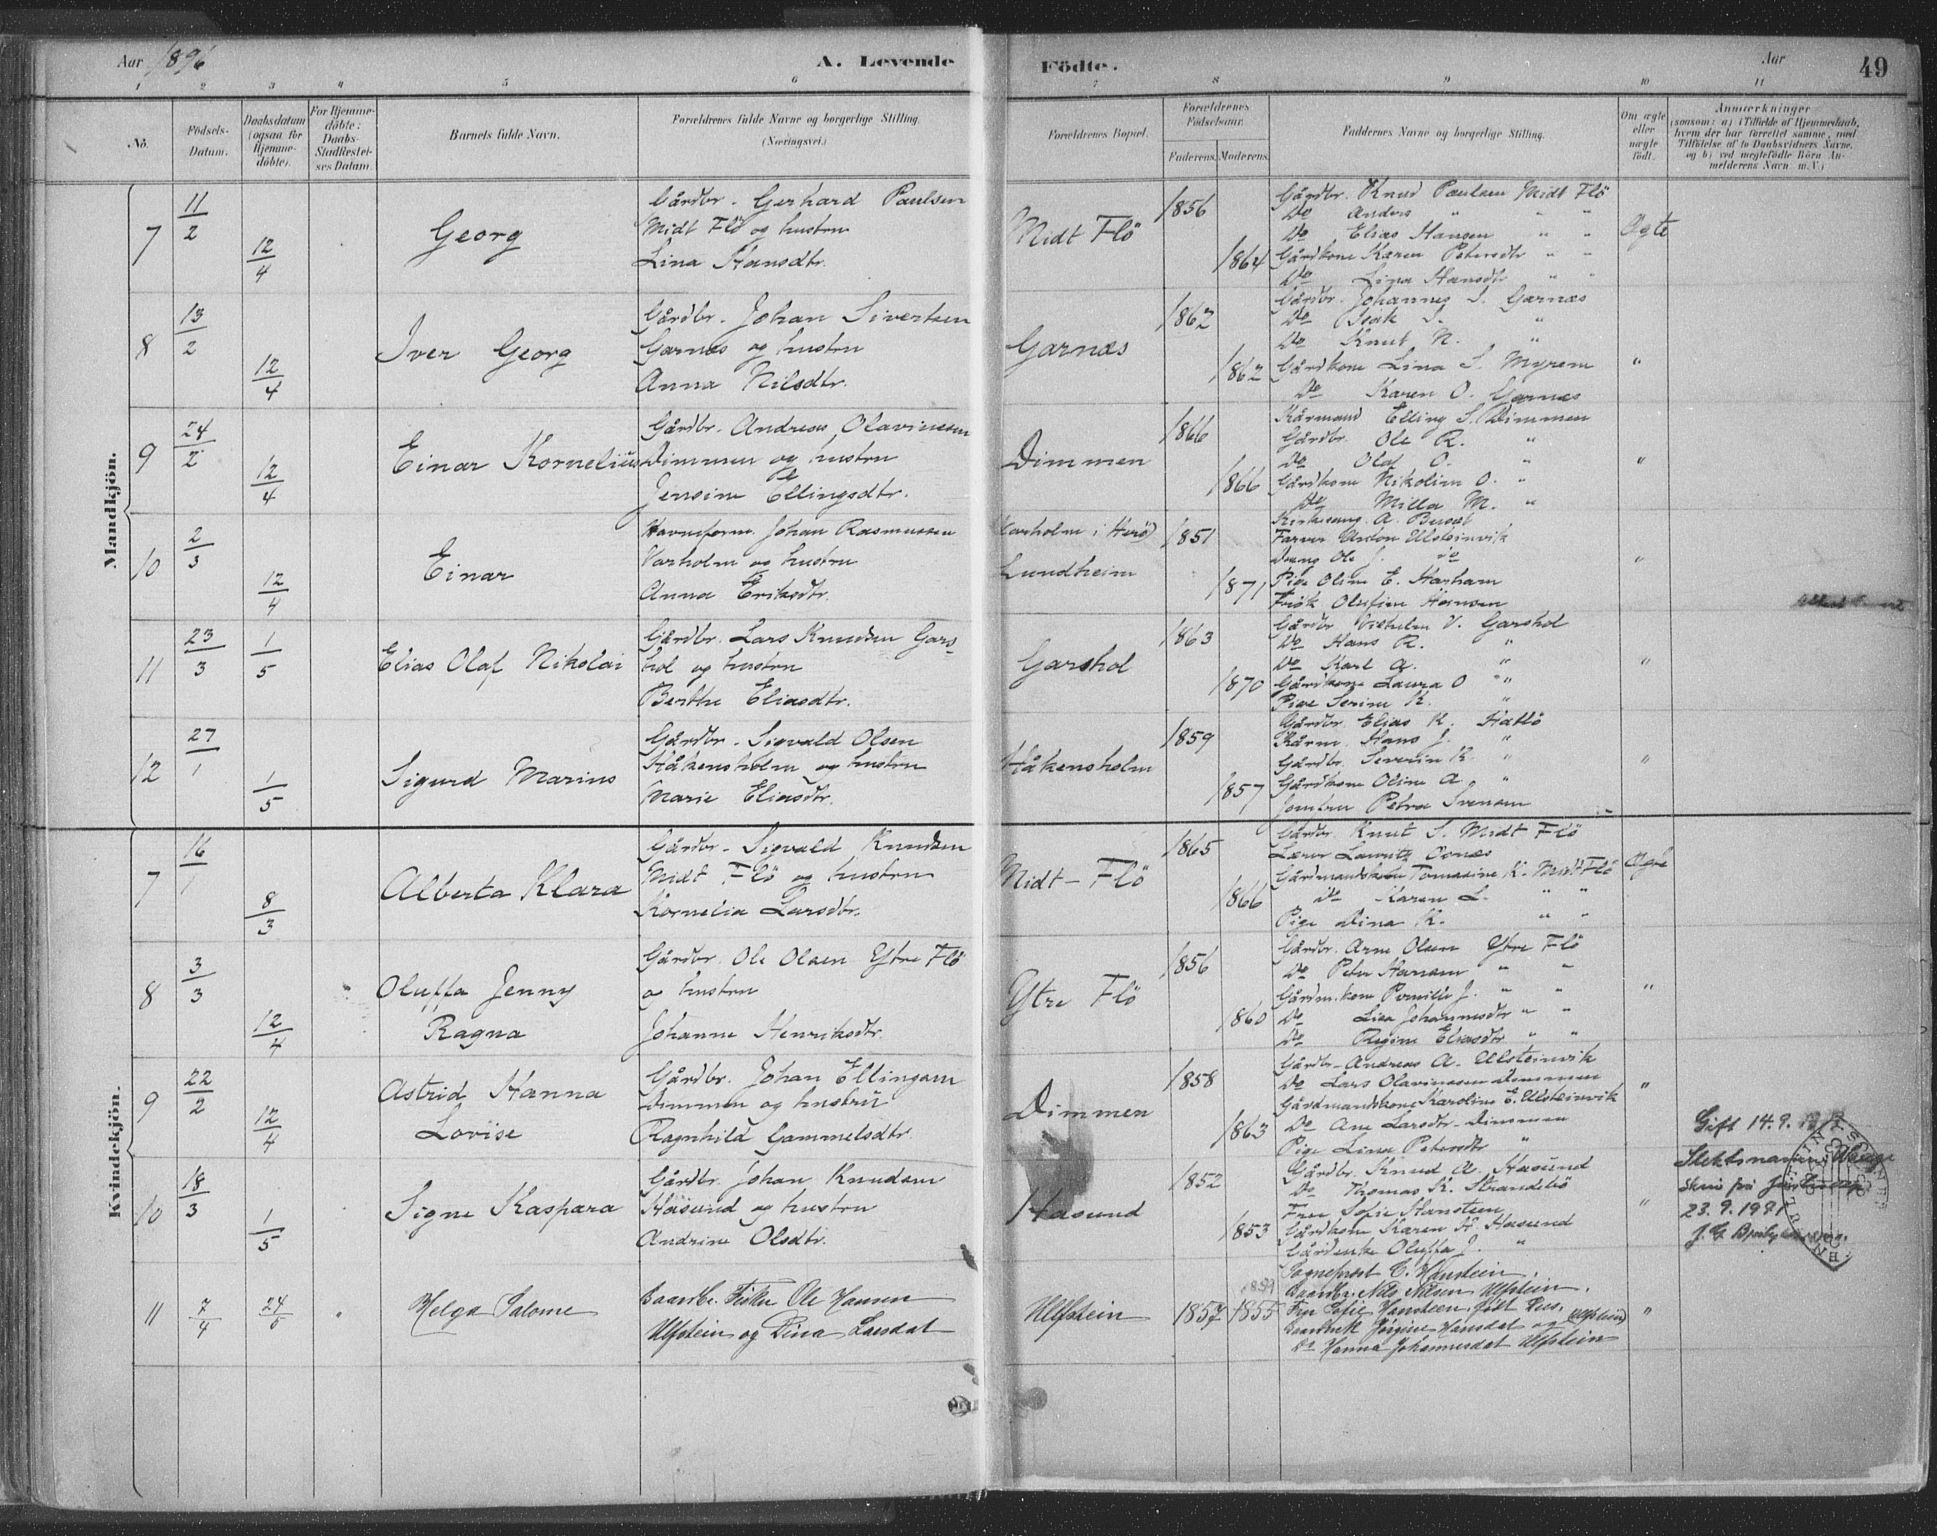 Aar 1896 A. Levende Födte. Aar 49
1 2 3 4 5 6 7 8 9 10 11
No. Födsels-Datum. Daabsdatum (ogsaa for Hjemme-döbte). For Hjemme-döbte: Daabs-Stadfestel-ses Datum. Barnets fulde Navn. Forældrenes fulde Navne og borgerlige Stilling. (Næringsvei.) Forældrenes Bopæl. Forældrenes Födselsaar. Faderens. Moderens. Faddernes Navne og borgerlige Stilling. Om ægte eller uægte födt. Anmærkninger (saasom: a) i Tilfælde af Hjemmedaab, hvem der har forrettet samme, med Tilföielse af to Daabsvidners Navne, og b) ved uegtefödte Börn An-melderens Navn m. V.)
Mandkjön.
7 11/2 12/4 Georg
Gårdbr. Gerhard Paulsen
Midt Flö og hustru
Lina Hansdtr.
Midt Flö 1856 1864
Gårdbr. Knud Paulsen Midt Flö
Do Anders " " "
Do Elias Hansen " "
Gårdkone Karen Petersdtr " "
Do Lina Hansdtr " "
Ægte
8 13/2 12/4 Iver Georg
Gårdbr. Johan Sivertsen
Garnæs og hustru
Anna Nilsdtr.
Garnæs 1862 1862
Gårdbr. Johannes S. Garnæs
Do Isak S. "
Do Knut N. "
Gårdkone Lina S. Myren
Do Karen O. Garnæs
"
9 24/2 12/4 Einar Kornelius
Gårdbr. Andreas Olavinssen
Dimmen og hustru
Jensine Ellingsdtr.
Dimmen 1866 1866
Kårmand Elling S. Dimmen
Gårdbr. Ole R. "
Do Olaf O. "
Gårdkone Nikoline O. "
Do Milla M. "
"
10 2/3 12/4 Einar
Havneform. Johan Rasmussen
Varholm og hustru
Anna Eriksdtr.
Varholm i Herö
Lundheim 1851 1871
Kirkesang. A. Buset
Farver Anton Ulsteinvik
Dreng Ole J. do
Pige Oline E. Harham
Frök. Olufine Hansen
"
11 23/3 1/5 Elias Olaf Nikolai
Gårdbr. Lars Knudsen Gars-
hol og hustru
Berthe Eliasdtr.
Garshol 1863 1870
Gårdbr. Vilhelm V. Garshol
Do Hans R. "
Do Karl A. "
Gårdkone Laura O "
Pige Serine K. "
"
12 27/1 1/5 Sigurd Marius
Gårdbr. Sigvald Olsen
Håkensholm og hustru
Marie Eliasdtr.
Håkensholm 1859 1857
Gårdbr. Elias K. Hatlö
Kårm. Hans J. "
Gårdbr. Severin K. "
Gårdkone Oline A. "
Jomfru Petra Svensen
"
Kvindekjön.
7 16/1 8/3 Alberta Klara
Gårdbr. Sigvald Knudsen
Midt Flö og hustru
Kornelia Larsdtr.
Midt-Flö 1865 1866
Gårdbr. Knut S. Midt Flö
Lærer Lauritz Osnæs
Gårdmandskone Tomasine K. Midt Flö
Do Karen L. " "
Pige Dina K. " "
Ægte
8 3/3 12/4 Oluffa Jenny
Ragna
Gårdbr. Ole Olsen Ytre Flö
og hustru
Johanne Henriksdtr.
Ytre Flö 1856 1860
Gårdbr. Arne Olsen Ytre Flö
Do Peter Hansen " "
Gårdm.kone Pernille J. " "
Do Lisa Johannesdtr " "
Do Regine Eliasdtr " "
"
9 22/2 12/4 Astrid Hanna
Lovise
Gårdbr. Johan Ellingsen
Dimmen og hustru
Ragnhild Gammelsdtr.
Dimmen 1858 1863
Gårdbr. Andreas A. Ulsteinvik
Do Lars Olavinssen Dimmen
Gårdmandskone Karoline E. Ulsteinvik
Do Ane Larsdtr. Dimmen
Pige Lina Petersdtr "
"
10 18/3 1/5 Signe Kaspara
Gårdbr. Johan Knudsen
Håsund og hustru
Andrine Olsdtr.
Hasund 1852 1853
Gårdbr. Knud A. Hasund
Do Thomas K. Strandabö
Frue Sofie Hansteen
Gårdkone Karen H. Hasund
Gårdenke Oluffa J. "
"
Gift 14.9.
Slektsnamn
skriv frå
23.9.1981
11 7/4 24/5 " Helga Salome
Gaardbr. Fisker Ole Hansen
Ulfstein og Lina Larsdat
Ulfstein 1857 1855
1859
Sogneprest C. Hansteen.
Gaardbr. Nils Nilsen Ulfstein.
Fru Sofie Hansteen, födt
Jörgine Hansdat og (Ulfstein)
Do Hanna Johannesdat Ulfstein
"